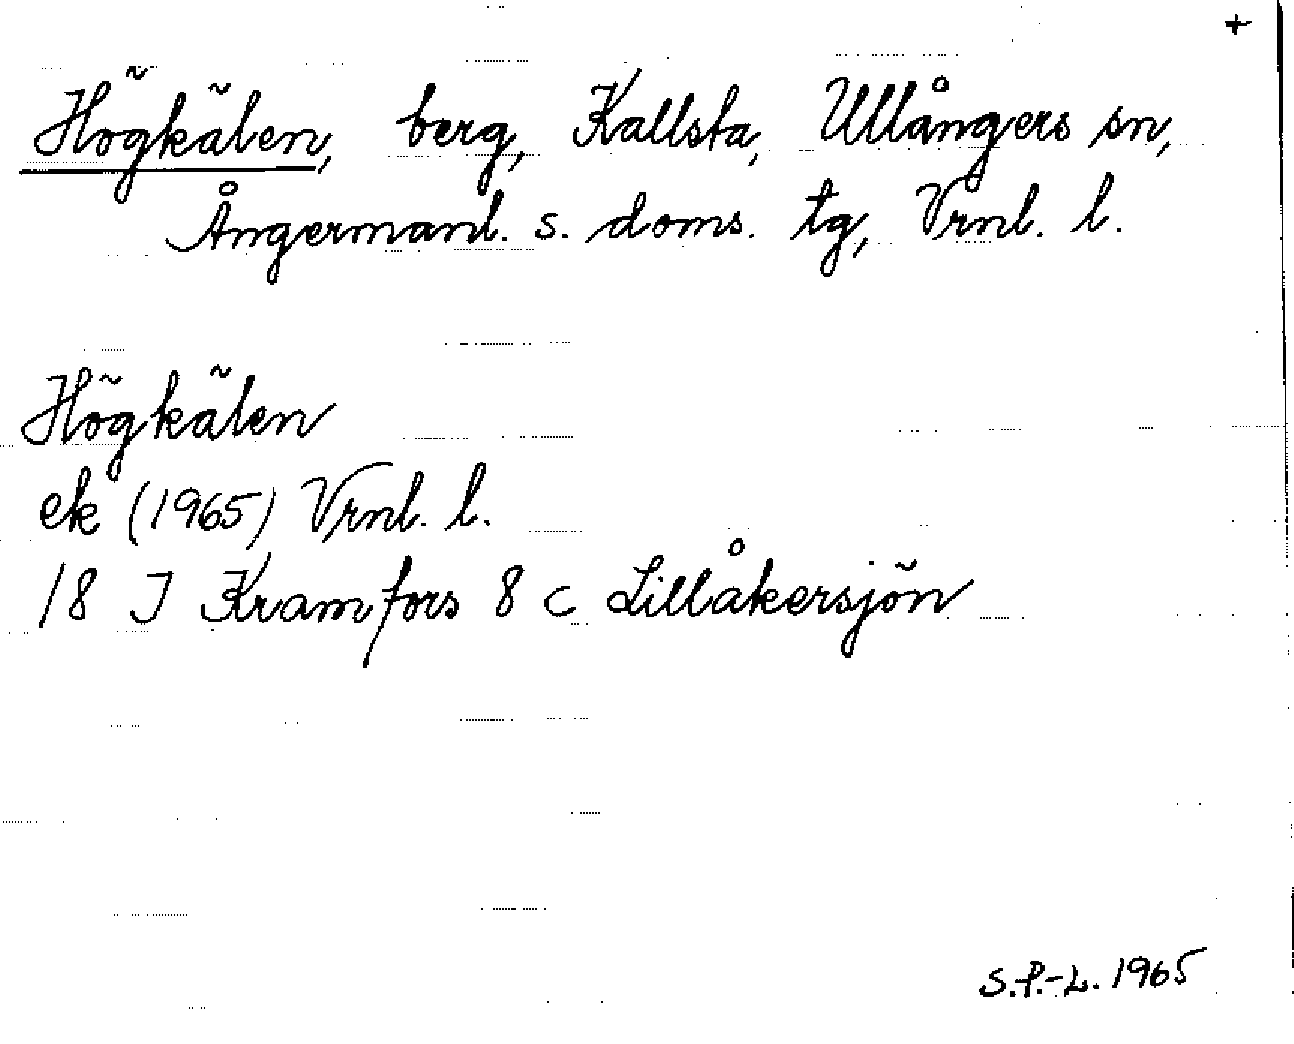 +
Högkälen, berg, Kallsta, Ullångers sn,
Ångermanl. s. doms. tg, Vrnl. l.
Högkälen
ek (1965) Vrnl. l.
18 J Kramfors 8 c Lillåkersjön
S.P.-L. 1965